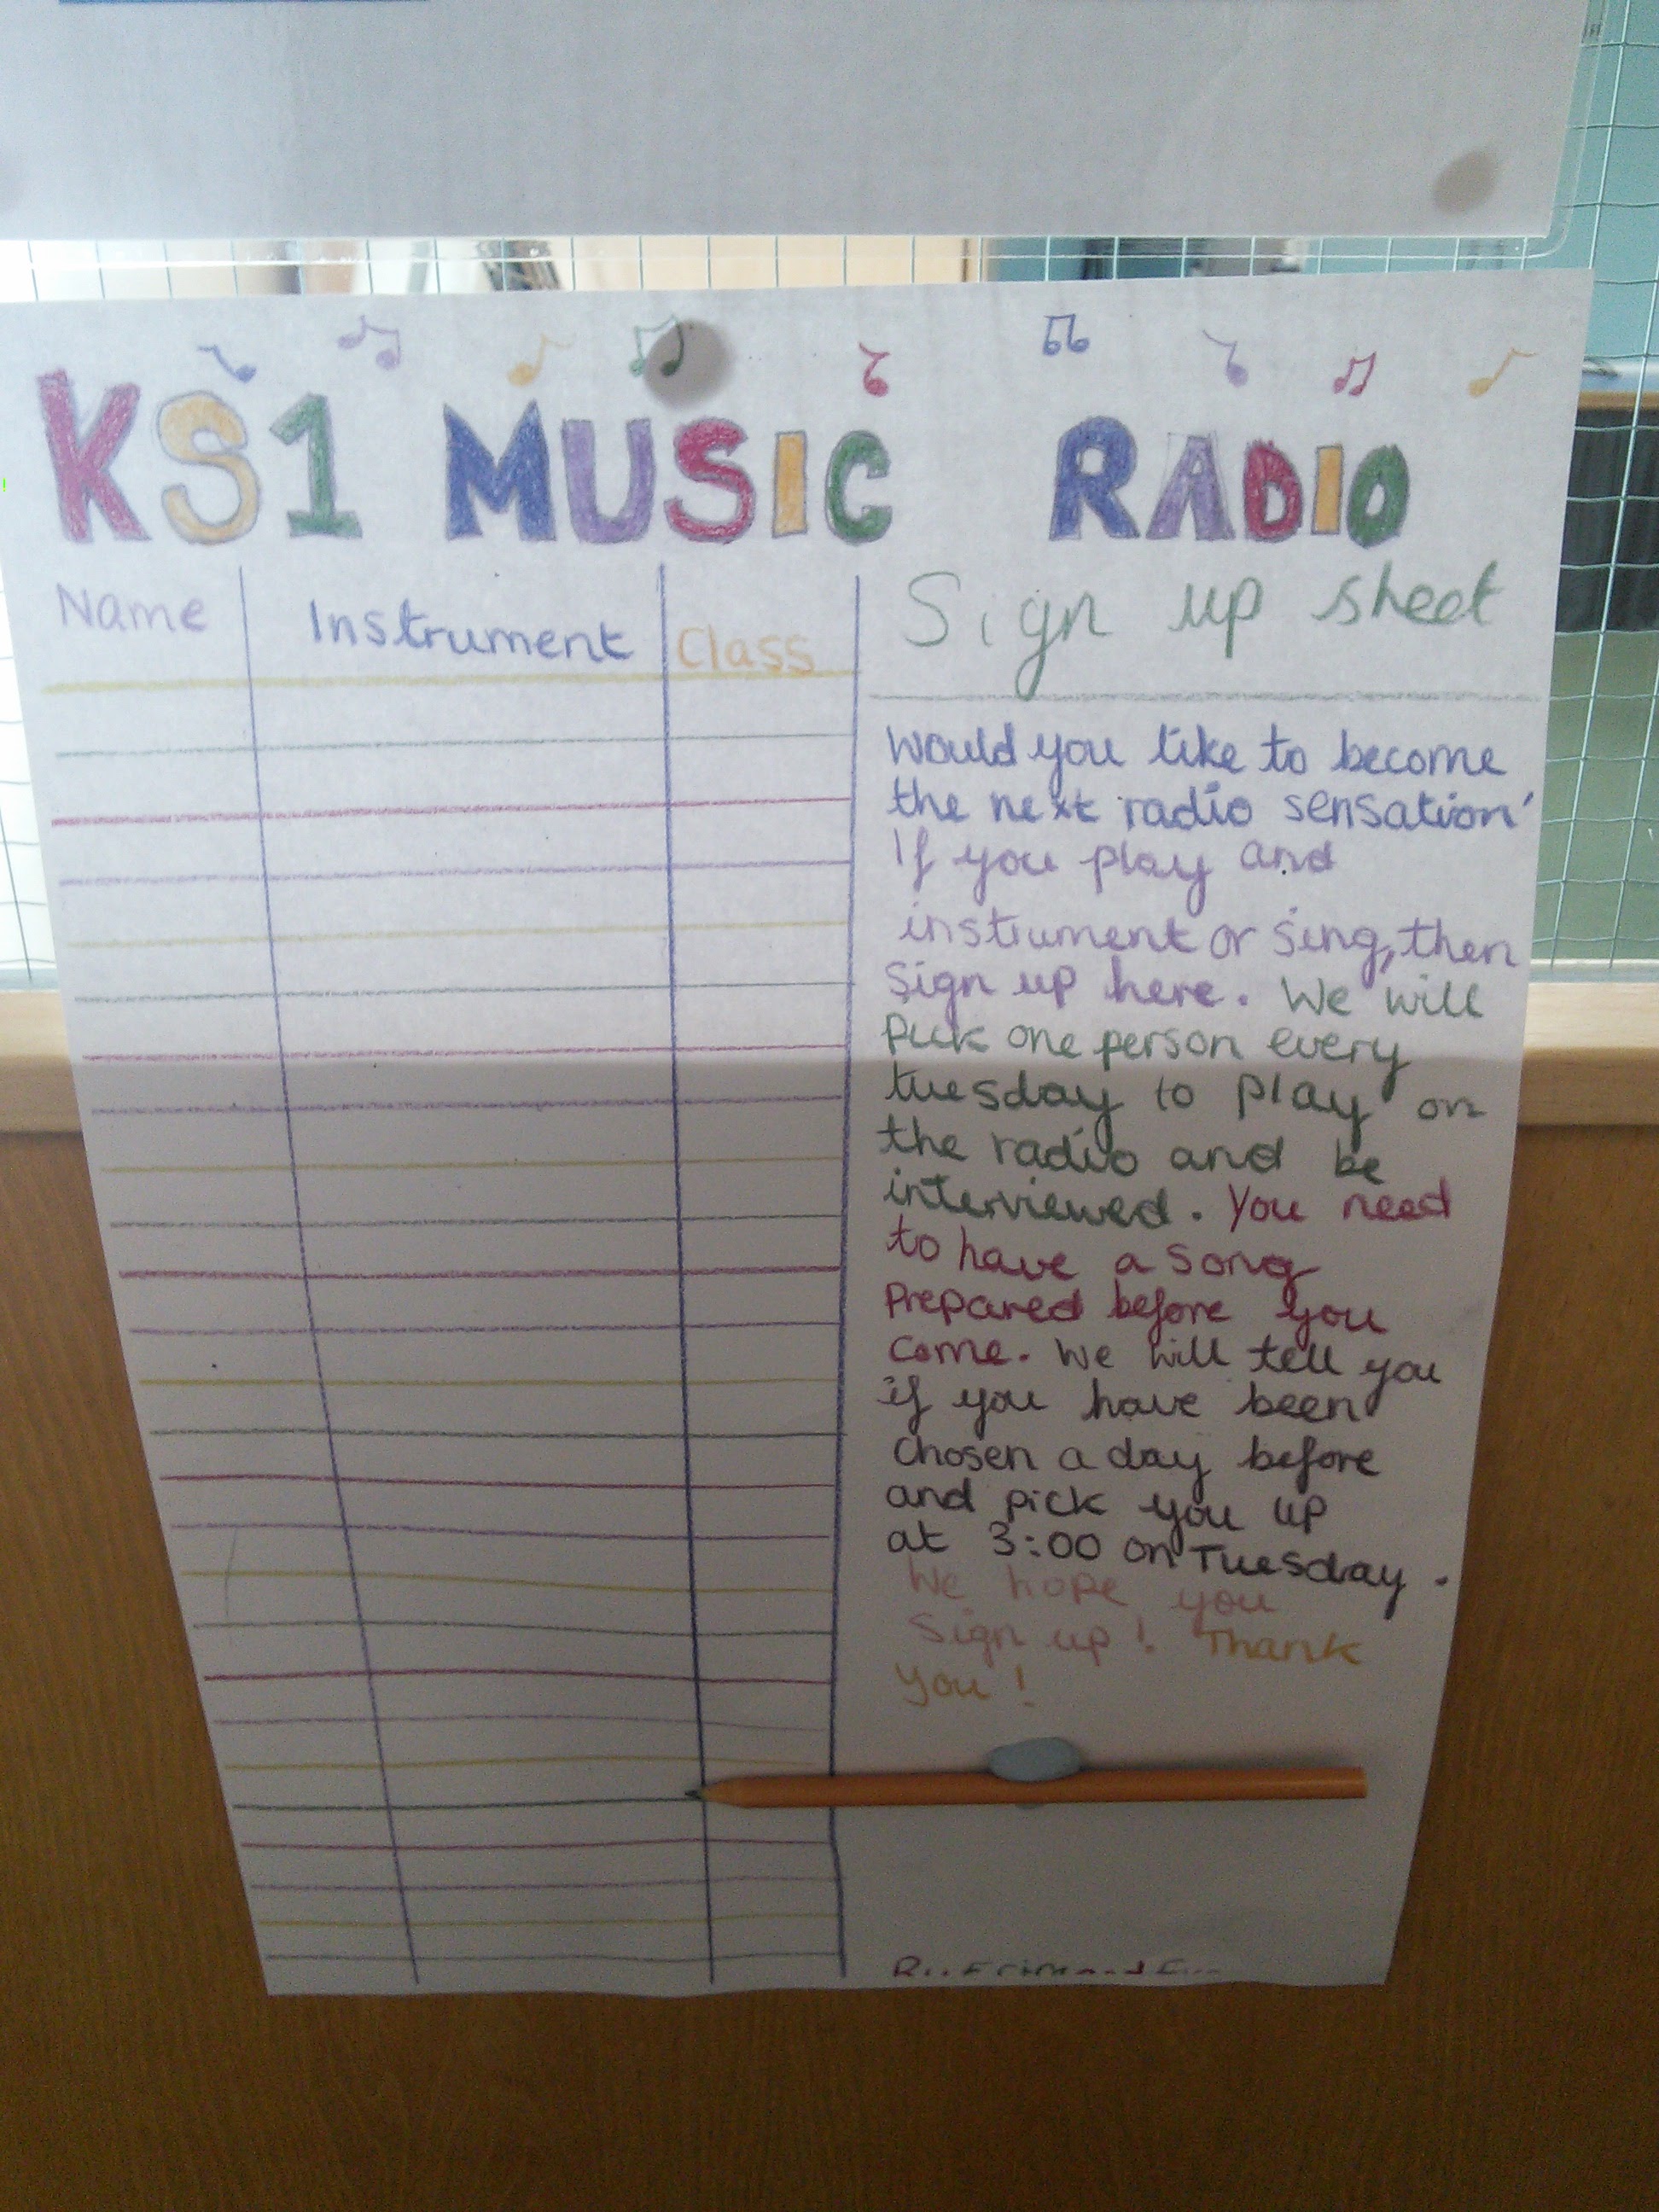 KS1 MUSIC RADIO
Name Instrument Class
Sign up sheet
Would you like to become
the next radio sensation
If you play and
instrument or sing, then
sign up here. We will
pick one person every
tuesday to play on
the radio and be
interviewed. You need
to have a song
prepared before you
come. We will tell you
if you have been
chosen a day before
and pick you up
at 3:00 on Tuesday.
We hope you
sign up! Thank
you!